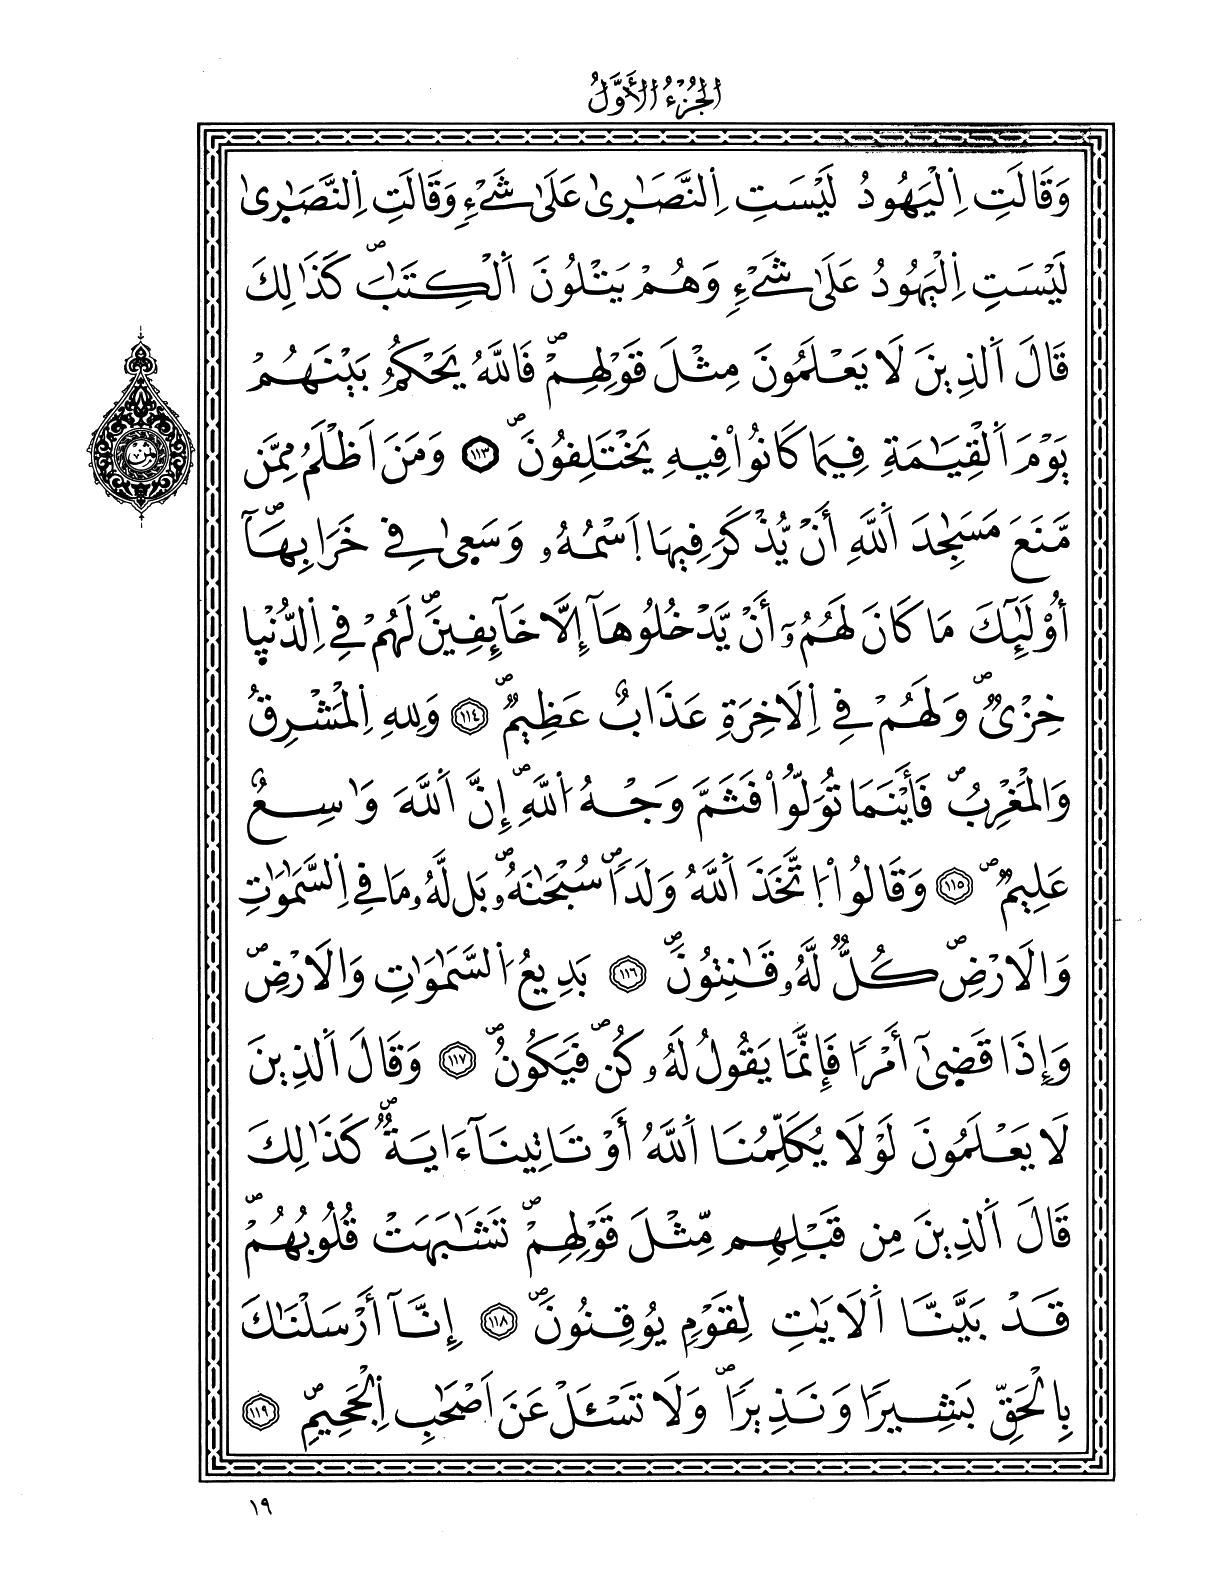 الجُزْءُ الأَوَّلُ
وَقَالَتِ اِ۬لْيَهُودُ لَيْسَتِ اِ۬لنَّصَٰر۪يٰ عَلَىٰ شَےْءٖ وَقَالَتِ اِ۬لنَّصَٰر۪يٰ
لَيْسَتِ اِ۬لْيَهُودُ عَلَىٰ شَےْءٖ وَهُمْ يَتْلُونَ اَ۬لْكِتَٰبَۖ كَذَٰلِكَ
قَالَ اَ۬لذِينَ لَا يَعْلَمُونَ مِثْلَ قَوْلِهِمْۖ فَاللَّهُ يَحْكُمُ بَيْنَهُمْ
يَوْمَ اَ۬لْقِيَٰمَةِ فِيمَا كَانُواْ فِيهِ يَخْتَلِفُونَۖ ١١٣ وَمَنَ اَظْلَمُ مِمَّن
مَّنَعَ مَسَٰجِدَ اَ۬للَّهِ أَنْ يُّذْكَرَ فِيهَا اَ۪سْمُهُۥ وَسَع۪يٰ فِے خَرَابِهَاۖٓ
أُوْلَٰٓئِكَ مَا كَانَ لَهُمُۥٓ أَنْ يَّدْخُلُوهَآ إِلَّا خَآئِفِينَۖ لَهُمْ فِے اِ۬لدُّنْي۪ا
خِزْيٞۖ وَلَهُمْ فِے اِ۬لَاخِرَةِ عَذَابٌ عَظِيمٞۖ ١١٤ وَلِلهِ اِ۬لْمَشْرِقُ
وَالْمَغْرِبُۖ فَأَيْنَمَا تُوَلُّواْ فَثَمَّ وَجْهُ اُ۬للَّهِۖ إِنَّ اَ۬للَّهَ وَٰسِعٌ
عَلِيمٞۖ ١١٥ وَقَالُواْ اُ۪تَّخَذَ اَ۬للَّهُ وَلَداٗۖ سُبْحَٰنَهُۥۖ بَل لَّهُۥ مَا فِے اِ۬لسَّمَٰوَٰتِ
وَالَارْضِۖ كُلّٞ لَّهُۥ قَٰنِتُونَۖ ١١٦ بَدِيعُ اُ۬لسَّمَٰوَٰتِ وَالَارْضِۖ
وَإِذَا قَض۪يٰٓ أَمْراٗ فَإِنَّمَا يَقُولُ لَهُۥ كُنۖ فَيَكُونُۖ ١١٧ وَقَالَ اَ۬لذِينَ
لَا يَعْلَمُونَ لَوْلَا يُكَلِّمُنَا اَ۬للَّهُ أَوْ تَاتِينَآ ءَايَةٞۖ كَذَٰلِكَ
قَالَ اَ۬لذِينَ مِن قَبْلِهِم مِّثْلَ قَوْلِهِمْۖ تَشَٰبَهَتْ قُلُوبُهُمْۖ
قَدْ بَيَّنَّا اَ۬لَايَٰتِ لِقَوْمٖ يُوقِنُونَۖ ١١٨ إِنَّآ أَرْسَلْنَٰكَ
بِالْحَقِّ بَشِيراٗ وَنَذِيراٗۖ وَلَا تَسْـَٔلْ عَنَ اَصْحَٰبِ اِ۬لْجَحِيمِۖ ١١٩
ثمن
١٩